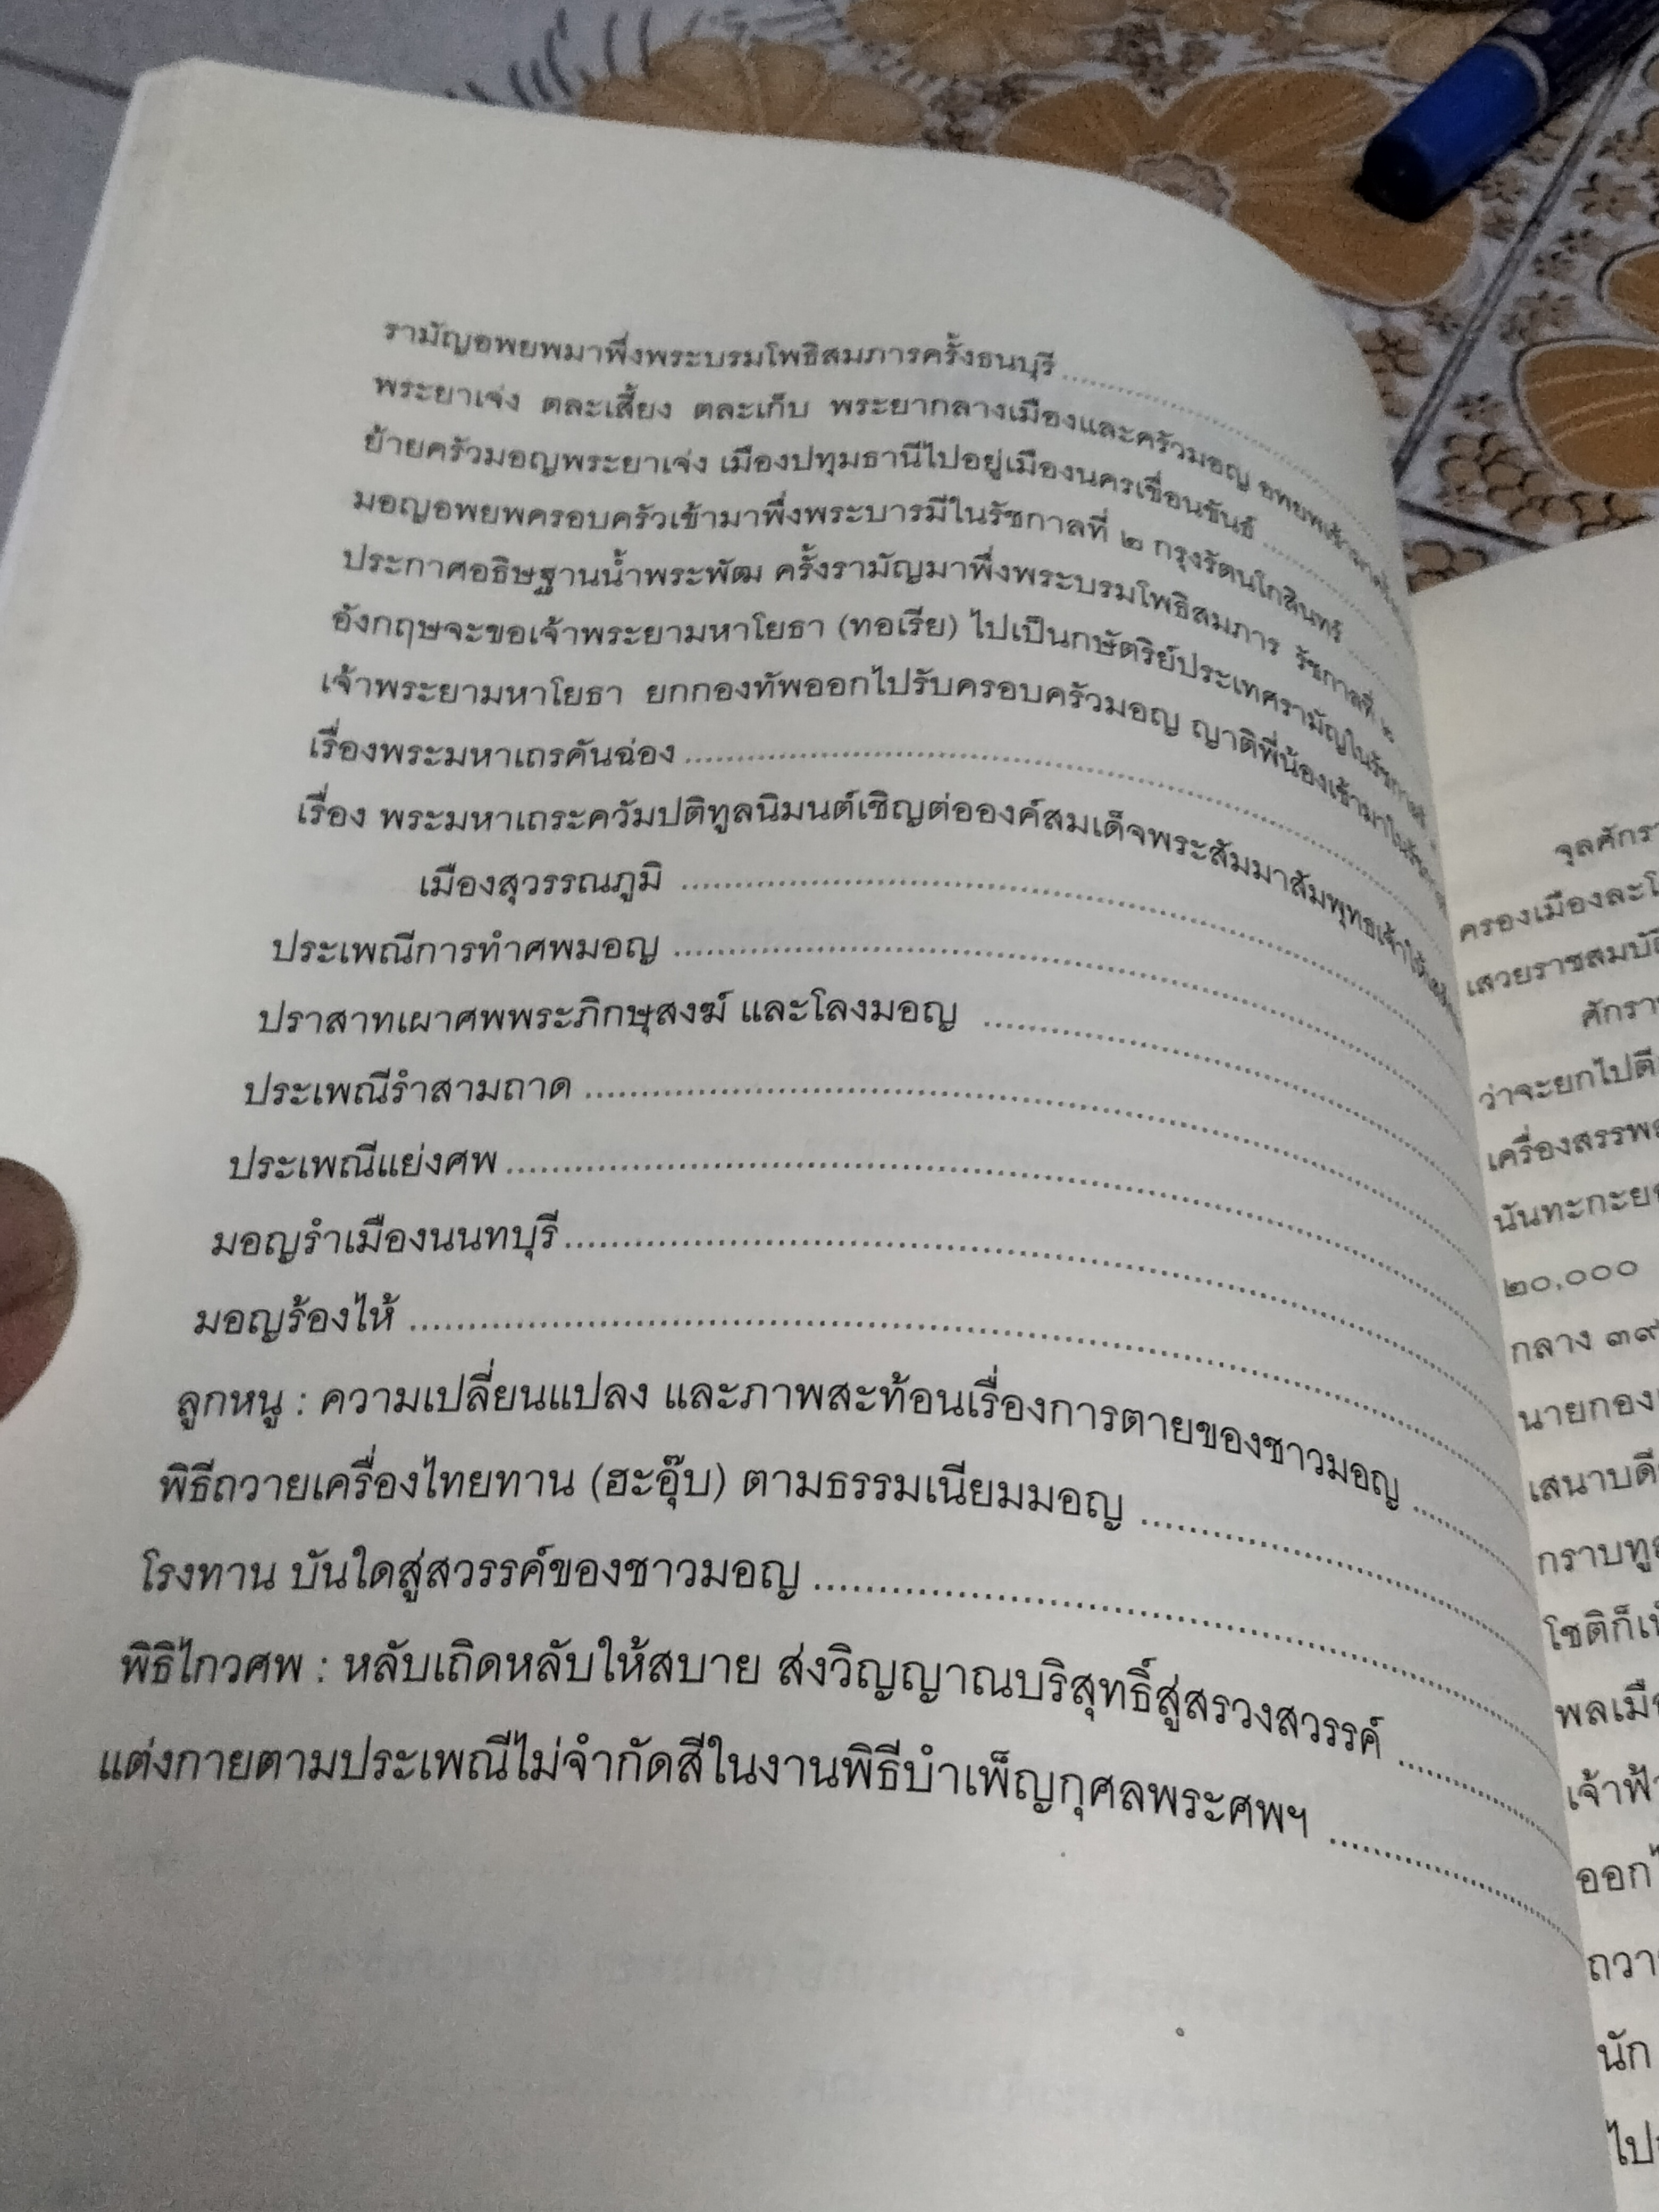 รามัญอพยพมาพึ่งพระบรมโพธิสมภารครั้งธนบุรี
พระยาเจ่ง ตละเสี้ยง ตละเก็บ พระยากลางเมืองและครัวมอญ อพยพเข้ามา
ย้ายครัวมอญพระยาเจ่ง เมืองปทุมธานีไปอยู่เมืองนครเขื่อนขันธ์
มอญอพยพครอบครัวเข้ามาพึ่งพระบารมีในรัชกาลที่ ๒ กรุงรัตนโกสินทร์
ประกาศอธิษฐานน้ำพระพัฒ ครั้งรามัญมาพึ่งพระบรมโพธิสมภาร รัชกาลที่ ๒
อังกฤษจะขอเจ้าพระยามหาโยธา (ทอเรีย) ไปเป็นกษัตริย์ประเทศรามัญในรัชกาลที่
เจ้าพระยามหาโยธา ยกกองทัพออกไปรับครอบครัวมอญ ญาติพี่น้องเข้ามาใน
เรื่องพระมหาเถรคันฉ่อง
เรื่อง พระมหาเถระควัมปติทูลนิมนต์เชิญต่อองค์สมเด็จพระสัมมาสัมพุทธเจ้า
เมืองสุวรรณภูมิ
ประเพณีการทำศพมอญ
ปราสาทเผาศพพระภิกษุสงฆ์ และโลงมอญ
ประเพณีรำสามถาด
ประเพณีแย่งศพ
มอญรำเมืองนนทบุรี
มอญร้องไห้
ลูกหนู : ความเปลี่ยนแปลง และภาพสะท้อนเรื่องการตายของชาวมอญ
พิธีถวายเครื่องไทยทาน (ฮะอุ๊บ) ตามธรรมเนียมมอญ
โรงทาน บันใดสู่สวรรค์ของชาวมอญ
พิธิไกวศพ : หลับเถิดหลับให้สบาย ส่งวิญญาณบริสุทธิ์สู่สรวงสวรรค์
แต่งกายตามประเพณีไม่จำกัดสีในงานพิธีบำเพ็ญกุศลพระศพฯ
ครองเมืองละ
เสวยราชสมบัติ
ว่าจะยกไปตี
นันทะกะ
๒๐,๐๐๐
กลาง ๓๙
นายกอง
เสนาบดี
กราบทูล
โชติก็
พลเมือง
เจ้าฟ้า
ออก
นัก
ไป